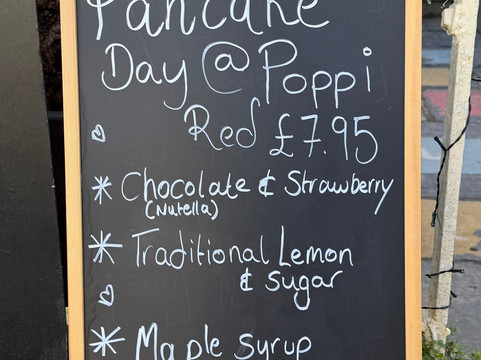 Pancake
Day @ Poppi
Red £7.95
* Chocolate & Strawberry
(Nutella)
* Traditional Lemon
& Sugar
* Maple Syrup